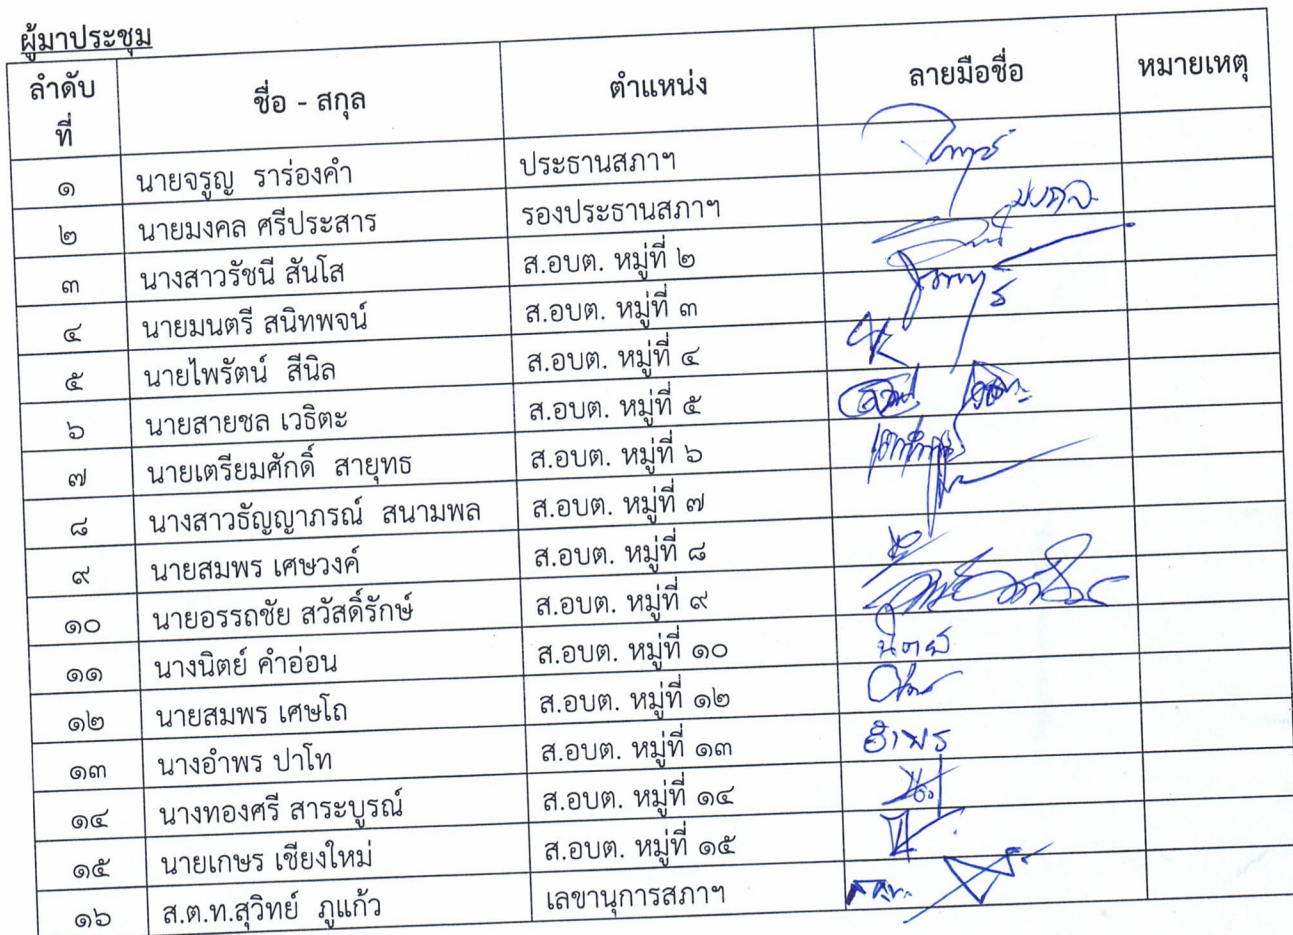 ผู้มาประชุม
ลำดับที่ ชื่อ - สกุล ตำแหน่ง ลายมือชื่อ หมายเหตุ
๑ นายจรูญ ราร่องคำ ประธานสภาฯ
๒ นายมงคล ศรีประสาร รองประธานสภาฯ มงคล
๓ นางสาวรัชนี สันโส ส.อบต. หมู่ที่ ๒
๔ นายมนตรี สนิทพจน์ ส.อบต. หมู่ที่ ๓
๕ นายไพรัตน์ สีนิล ส.อบต. หมู่ที่ ๔
๖ นายสายชล เวธิตะ ส.อบต. หมู่ที่ ๕
๗ นายเตรียมศักดิ์ สายุทธ ส.อบต. หมู่ที่ ๖
๘ นางสาวธัญญาภรณ์ สนามพล ส.อบต. หมู่ที่ ๗
๙ นายสมพร เศษวงค์ ส.อบต. หมู่ที่ ๘
๑๐ นายอรรถชัย สวัสดิ์รักษ์ ส.อบต. หมู่ที่ ๙
๑๑ นางนิตย์ คำอ่อน ส.อบต. หมู่ที่ ๑๐ นิตย์
๑๒ นายสมพร เศษโถ ส.อบต. หมู่ที่ ๑๒
๑๓ นางอำพร ปาโท ส.อบต. หมู่ที่ ๑๓ อำพร
๑๔ นางทองศรี สาระบูรณ์ ส.อบต. หมู่ที่ ๑๔
๑๕ นายเกษร เชียงใหม่ ส.อบต. หมู่ที่ ๑๕
๑๖ ส.ต.ท.สุวิทย์ ภูแก้ว เลขานุการสภาฯ